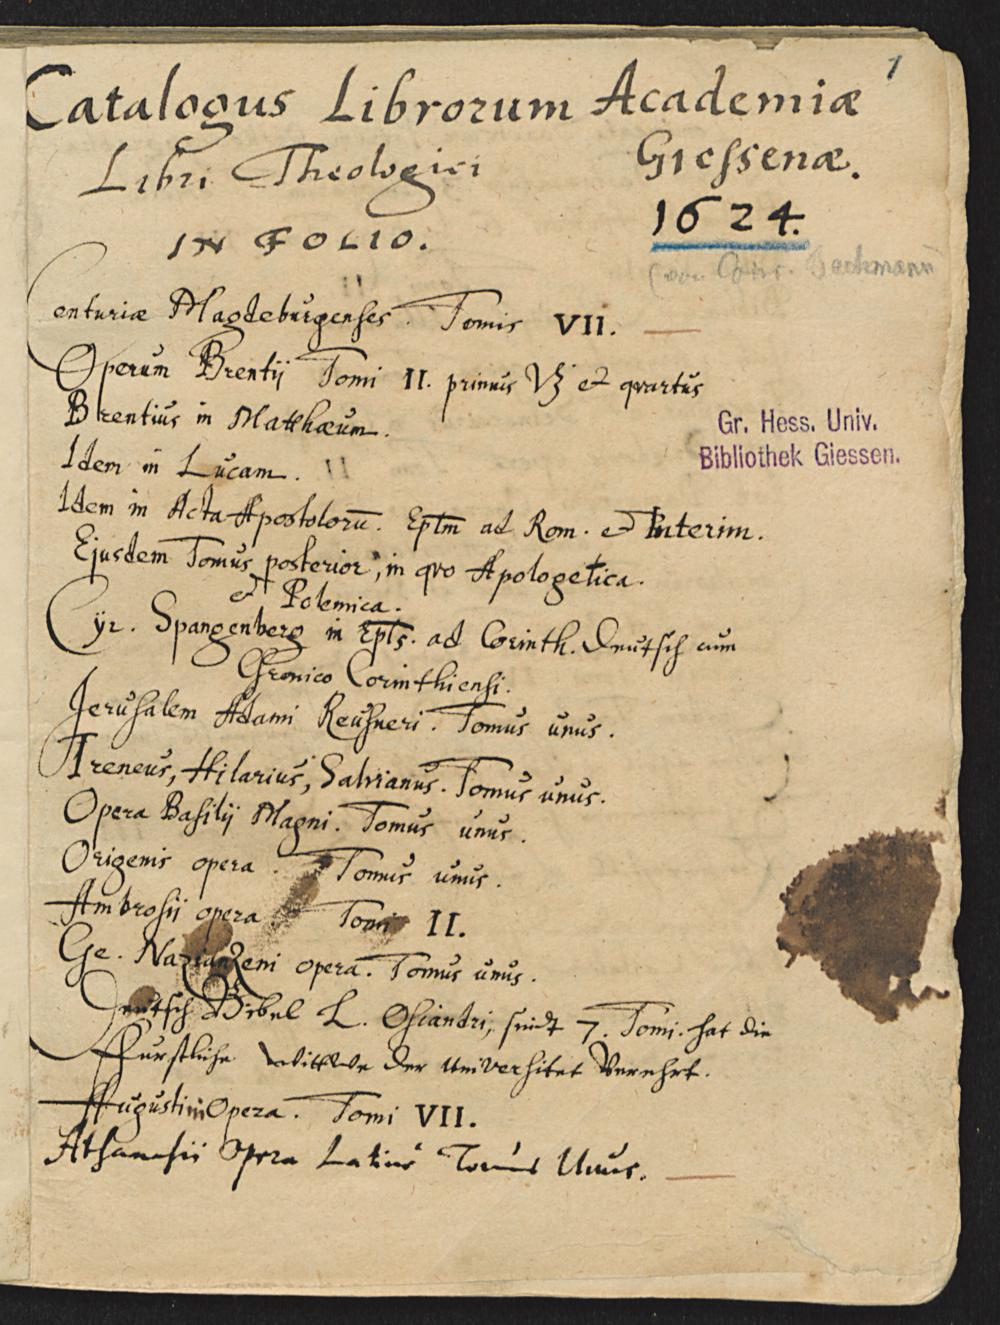 1
Catalogus Librorum Academiæ
Giessenæ.
Libri Theologici
1624.
IN FOLIO.
Centuriæ Magdeburgenses. Tomis VII.
Operum Brentij Tomi II. primus et quartus
Brentius in Matthæum.
Idem in Lucam.
Idem in Acta Apostolorū. Eptm ad Rom. et Interim.
Ejusdem Tomus posterior, in quo Apologetica.
et Polemica.
Cyr. Spangenberg in Epts. ad Corinth. Deutsch cum
Chronico Corinthiensi.
Jerusalem Adami Reusneri. Tomus unus.
Ireneus, Hilarius, Salvianus. Tomus unus.
Opera Basilij Magni. Tomus unus.
Origenis opera. Tomus unus.
Ambrosij opera Tomi II.
Ge. Nazianzeni opera. Tomus unus.
Deutsch Bibel L. Osiandri, sindt 7. Tomi. hat die
Furstliche Wittwe der Universitet Verehrt.
Augustini Opera. Tomi VII.
Athanasii Opera Latine Tomus Unus.
Gr. Hess. Univ.
Bibliothek Giessen.